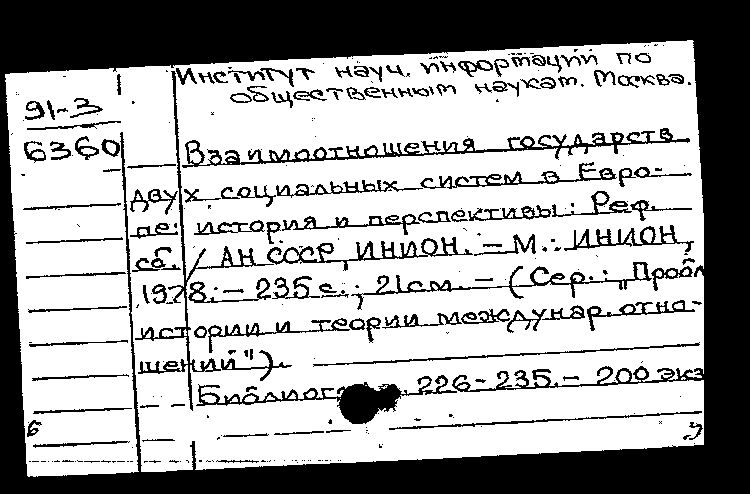 Институт науч. информации по
общественным наукам. Москва.
91-3
6360
Взаимоотношения государств
двух социальных систем в Евро-
пе: история и перспективы: Реф.
сб. / АН СССР, ИНИОН. – М.: ИНИОН,
1978. – 235 с.; 21 см. – (Сер.: „Пробл
истории и теории междунар. отно-
шений").
226-235. – 200 экз
б